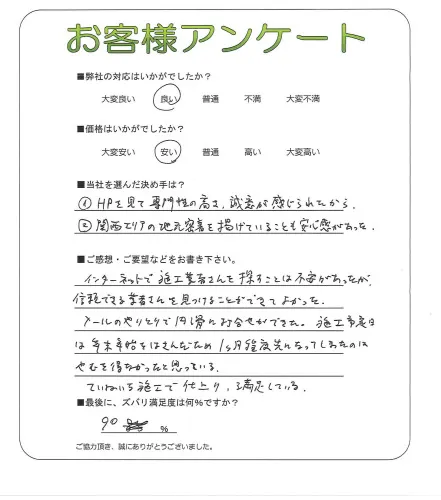 お客様アンケート
■弊社の対応はいかがでしたか?
大変良い 良い 普通 不満 大変不満
■価格はいかがでしたか?
大変安い 安い 普通 高い 大変高い
■当社を選んだ決め手は?
① HPを見て専門性の高さ、誠意が感じられたから。
② 関西エリアの地元密着を掲げていることも安心感があった。
■ご感想・ご要望などをお書き下さい。
インターネットで施工業者さんを探すことは不安があったが、
信頼できる業者さんを見つけることができてよかった。
メールのやりとりで円滑にお合せができた。施工予定日
は年末年始をはさんだため1ヶ月程度先になってしまったのは
やむを得なかったと思っている。
ていねいな施工で仕上り、満足している。
■最後に、ズバリ満足度は何%ですか?
90 %
ご協力頂き、誠にありがとうございました。